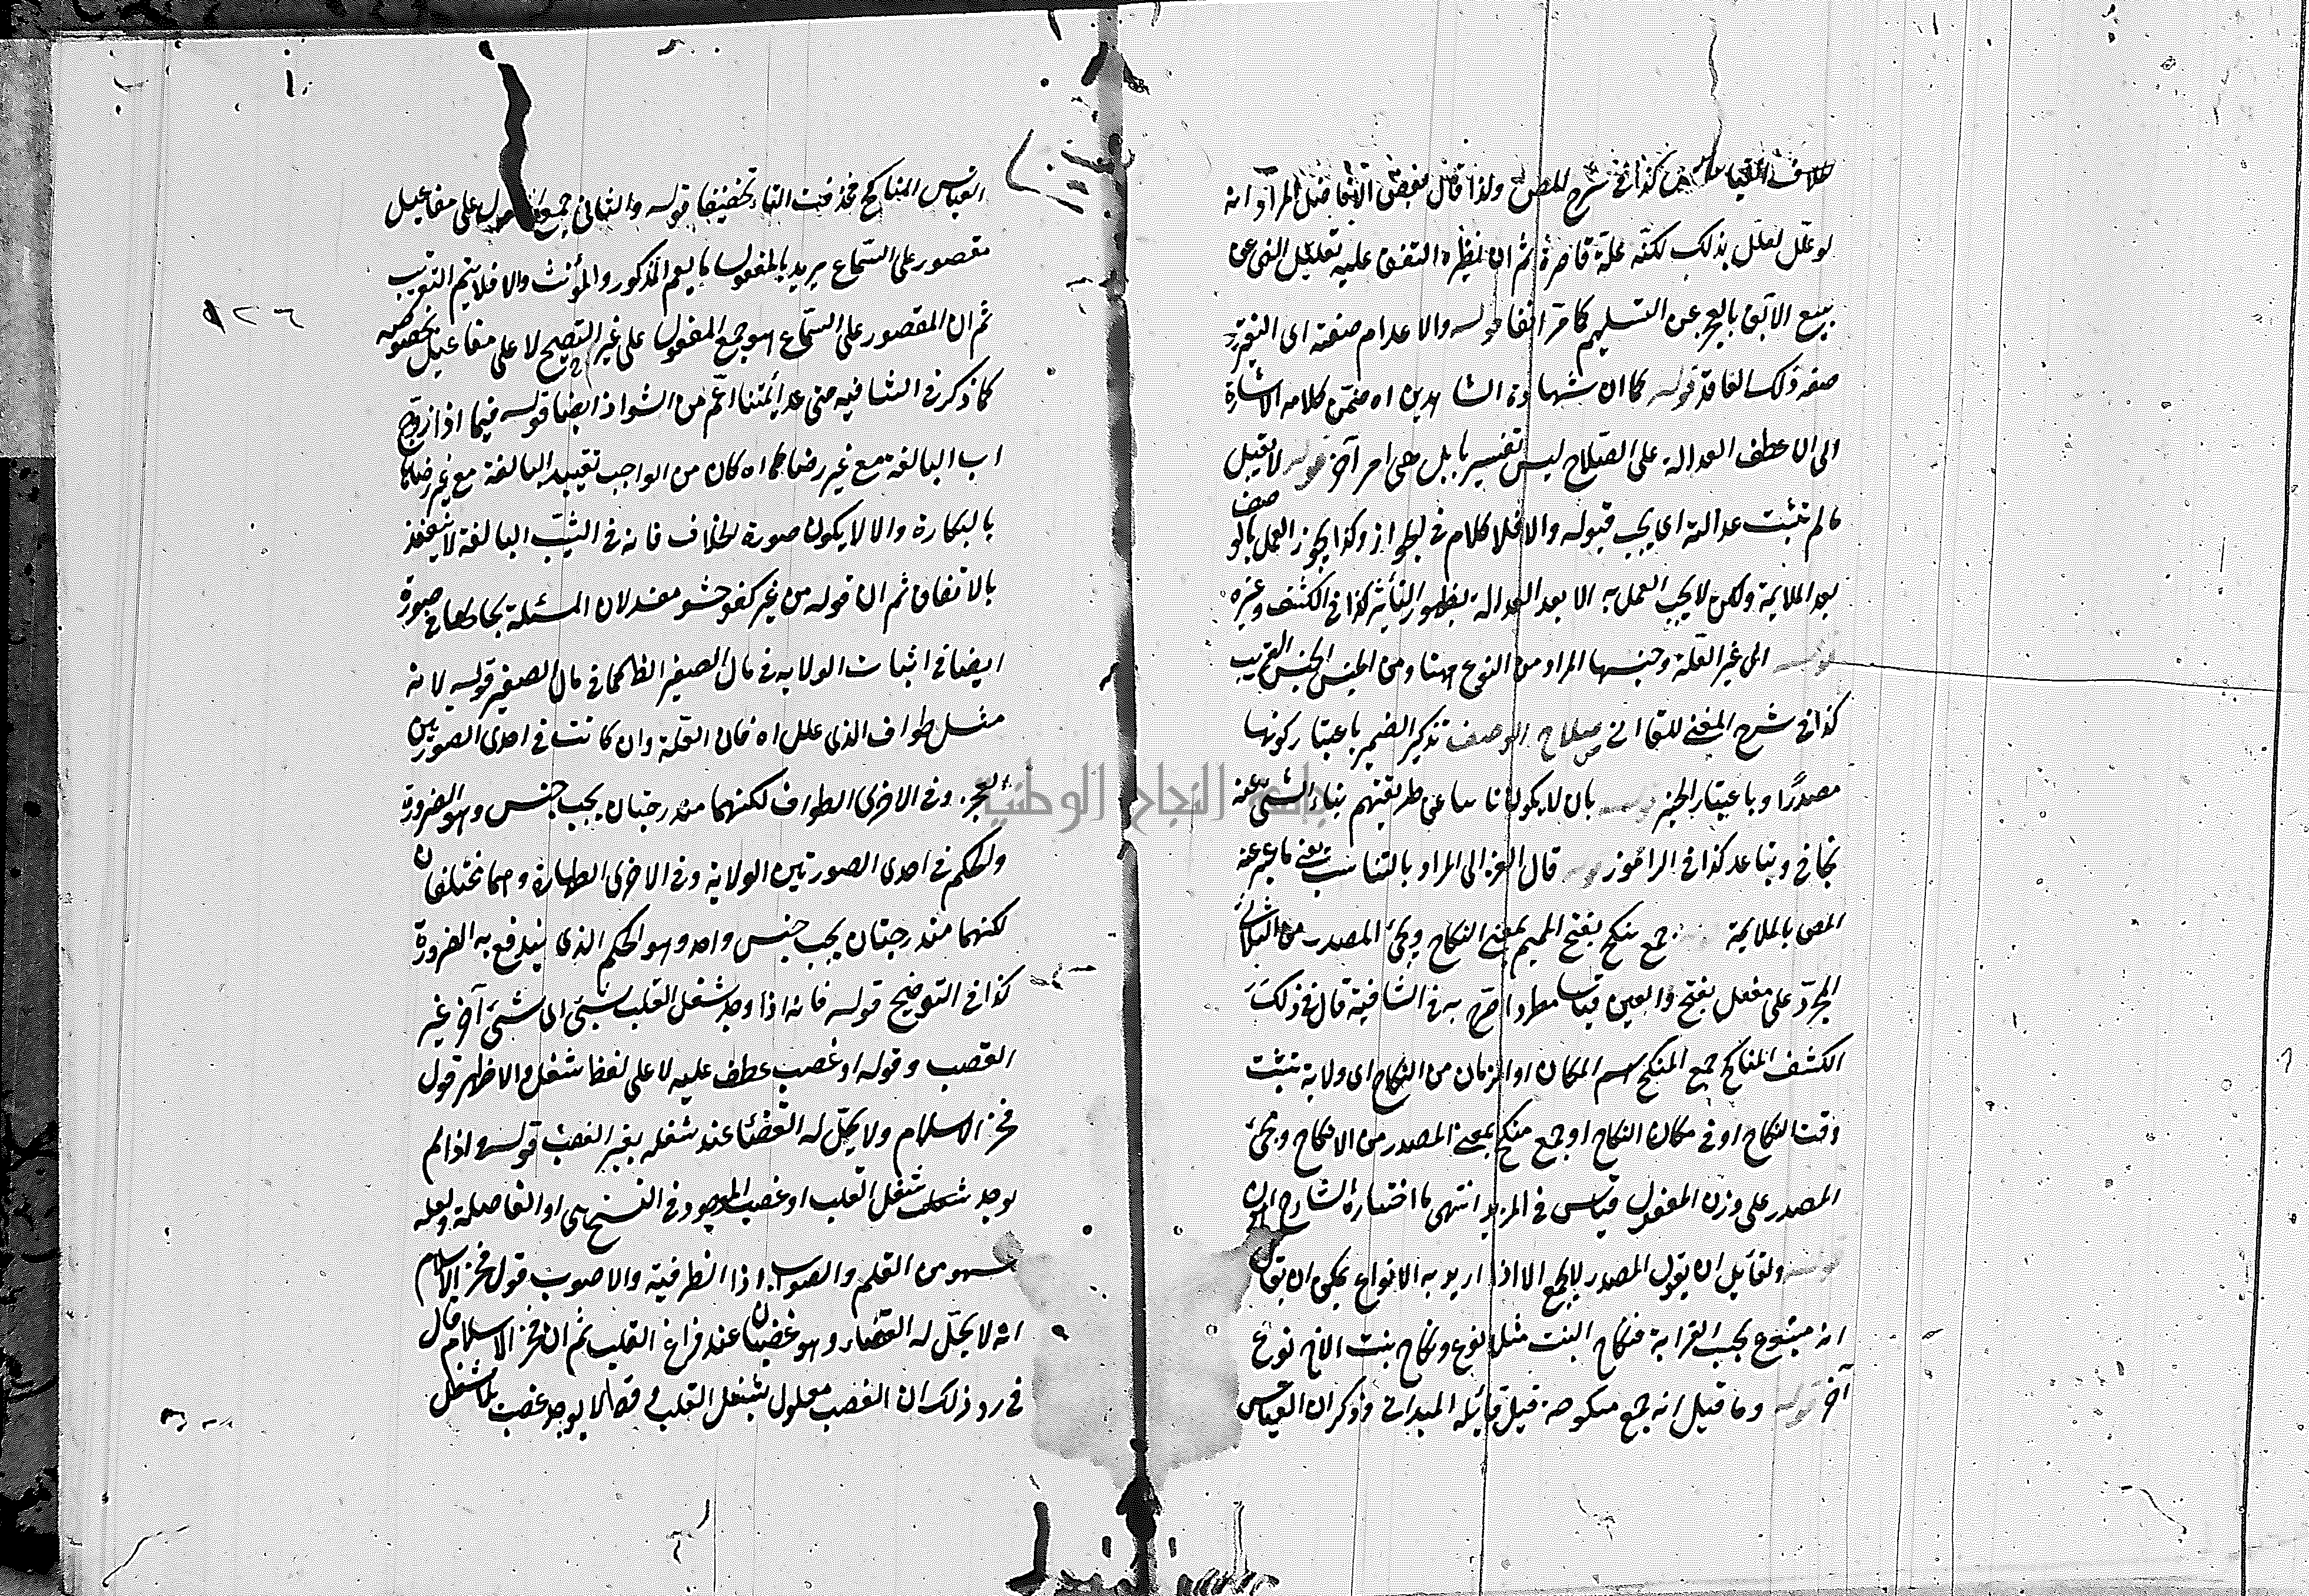 كذا فى شرح المص ولذا قال بعض الافاضل المراد انه
لو علل لعلل بذلك لكنه علة قاصرة ثم ان نظيره المتفق عليه تعليل النهى عن
بيع الآبق بالعجز عن التسليم كما مر آنفا قوله والا عدام صفته اى
صفة ذلك قوله كما ان شهادة الشاهدين اه ضمن كلامه الاشارة
الى ان عطف العدالة على الصلاح ليس تفسيريا بل هى امر آخر قوله لا يقبل
ما لم تثبت عدالته اى يجب قبوله والا فلا كلام فى الجواز وكذا يجوز العمل بالوصف
بعد الملايمة ولكن لا يجب العمل به الا بعد العدالة بظهور التأثير كذا فى الكشف وغيره
قوله الى غير العلة وجنسها المراد من النوع ههنا ومن الجنس الجنس القريب
كذا فى شرح المغنى للقاانى صلاح الوصف تذكير الضمير باعتبار كونها
مصدرًا وباعتبار الخبر قوله بان لا يكون نابيا عن طريقتهم نباء الشئ عنه
تجافى وتباعد كذا فى الراموز قوله قال الغزالى المراد بالتناسب يعنى ما عبر عنه
المص بالملايمة قوله جمع منكح بفتح الميم بمعنى النكاح ويجئ المصدر من الثلاثى
المجرد على مفعل بفتح والعين قياسا مطردا صرح به فى الشافية قال فى ذلك
الكشف المناكح جمع المنكح اسم المكان او الزمان من النكاح اى ولاية تثبت
وقت النكاح او فى مكان النكاح او جمع منكح بمعنى المصدر من الانكاح ويجئ
المصدر على وزن المفعول قياس فى المزيد انتهى ما اختاره الشارح
قوله ولقائل ان يقول المصدر لا يجمع الا اذا اريد به الانواع يمكن ان يقال
انه متنوع بحسب القرابة فنكاح البنت مثلا نوع ونكاح بنت الاخ نوع
آخر قوله وما قيل انه جمع منكوحة قيل قائله الميدانى وذكر ان القياس
القياس المناكيح فحذفت الياء تخفيفا قوله والثانى جمع المفعول على مفاعيل
مقصور على السماع يريد بالمفعول ما يعم المذكور والمؤنث والا فلا يتم التقريب
ثم ان المقصور على السماع هو جمع المفعول على غير التصحيح لا على مفاعيل بخصوصه
كما ذكر فى الشافيه حتى عد ائمتنا اعم من الشواذ ايضا قوله فيما اذا زوج
اب البالغة مع غير رضاها اه كان من الواجب تقييد البالغة مع غير رضاها
بالبكارة والا لا يكون صورة الخلاف فانه فى الثيب البالغة لا ينعقد
بالاتفاق ثم ان قوله من غير كفو حشو مفسد لان المسئلة بحالها فى صورة
ايضا فى اثبات الولايه فى مال الصغير الظ كما فى مال الصغير قوله لانه
مثل طواف الذى علل اه فان العلة وان كانت فى احدى الصورتين
العجز وفى الاخرى الطواف لكنهما مندرجتان بحسب جنس وهو الضرورة
والحكم فى احدى الصورتين الولاية وفى الاخرى الطهارة وهما مختلفان
لكنهما مندرجتان بحسب جنس واحد وهو الحكم الذى يندفع به الضرورة
كذا فى التوضيح قوله فانه اذا وجد شغل القلب بشئ الى شئ آخر غير
الغضب وقوله او غضب عطف عليه لا على لفظ شغل والاظهر قول
فخر الاسلام ولا يحل له القضاء عند شغله بغير الغضب قوله واذا لم
يوجد شغل القلب او غضب الموجود فى النسخ هى او الفاصلة ولعله
سهو من القلم والصواب اذا الظرفية والاصوب قول فخر الاسلام
انه لا يحل له القضاء وهو غضبان عند فراغ القلب ثم ان فخر الاسلام قال
فى رد ذلك ان الغضب معلول بشغل القلب وقط لا يوجد غضب بلا شغل